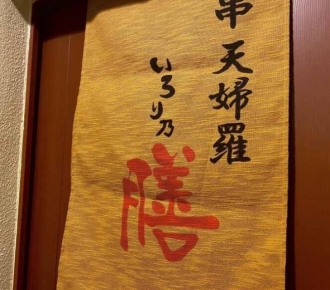 串天婦羅
いろり乃
膳